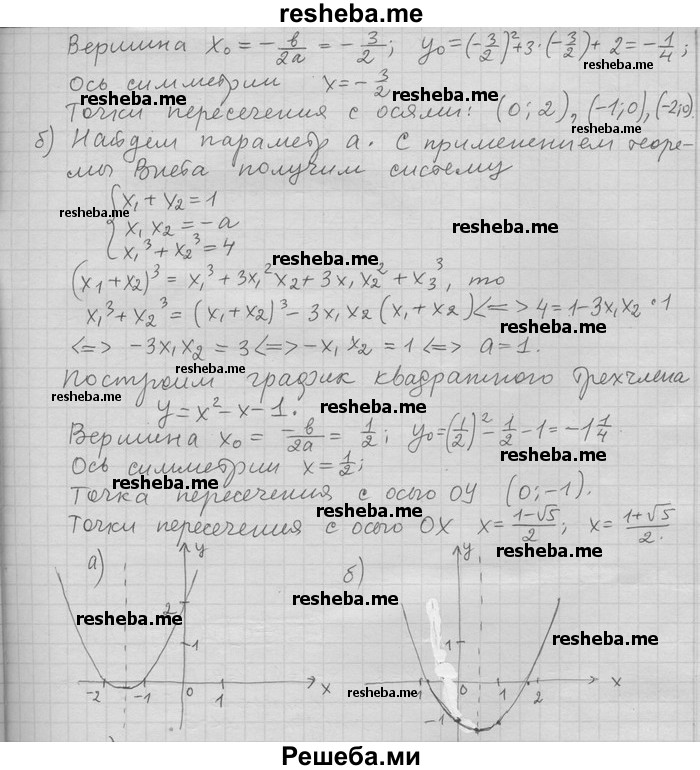 resheba.me
Вершина x₀ = -в/2a = -3/2; y₀ = (-3/2)² + 3·(-3/2) + 2 = -1/4;
resheba.me
Ось симметрии x = -3/2
resheba.me resheba.me
Точки пересечения с осями: (0; 2), (-1; 0), (-2; 0).
resheba.me
б) Найдем параметр a. С применением теоре-
мы Виета получим систему
{ x₁ + x₂ = 1
resheba.me
x₁ x₂ = -a
resheba.me
x₁³ + x₂³ = 4
resheba.me
(x₁ + x₂)³ = x₁³ + 3x₁²x₂ + 3x₁x₂² + x₃³, то
x₁³ + x₂³ = (x₁ + x₂)³ - 3x₁x₂(x₁ + x₂) <=> 4 = 1 - 3x₁x₂ · 1
resheba.me
<=> -3x₁x₂ = 3 <=> -x₁x₂ = 1 <=> a = 1.
resheba.me
Построим график квадратного трехчлена
resheba.me
y = x² - x - 1.
resheba.me
Вершина x₀ = -в/2a = 1/2; y₀ = (1/2)² - 1/2 - 1 = -1 1/4.
resheba.me
Ось симметрии x = 1/2;
resheba.me
Точка пересечения с осью OY (0; -1).
resheba.me
Точки пересечения с осью OX x = (1-√5)/2; x = (1+√5)/2.
resheba.me
а) y б) y
resheba.me resheba.me
2
resheba.me
1 1
resheba.me
-2 -1 0 1 x
resheba.me
-1 0 1 2 x
-1
Решеба.ми